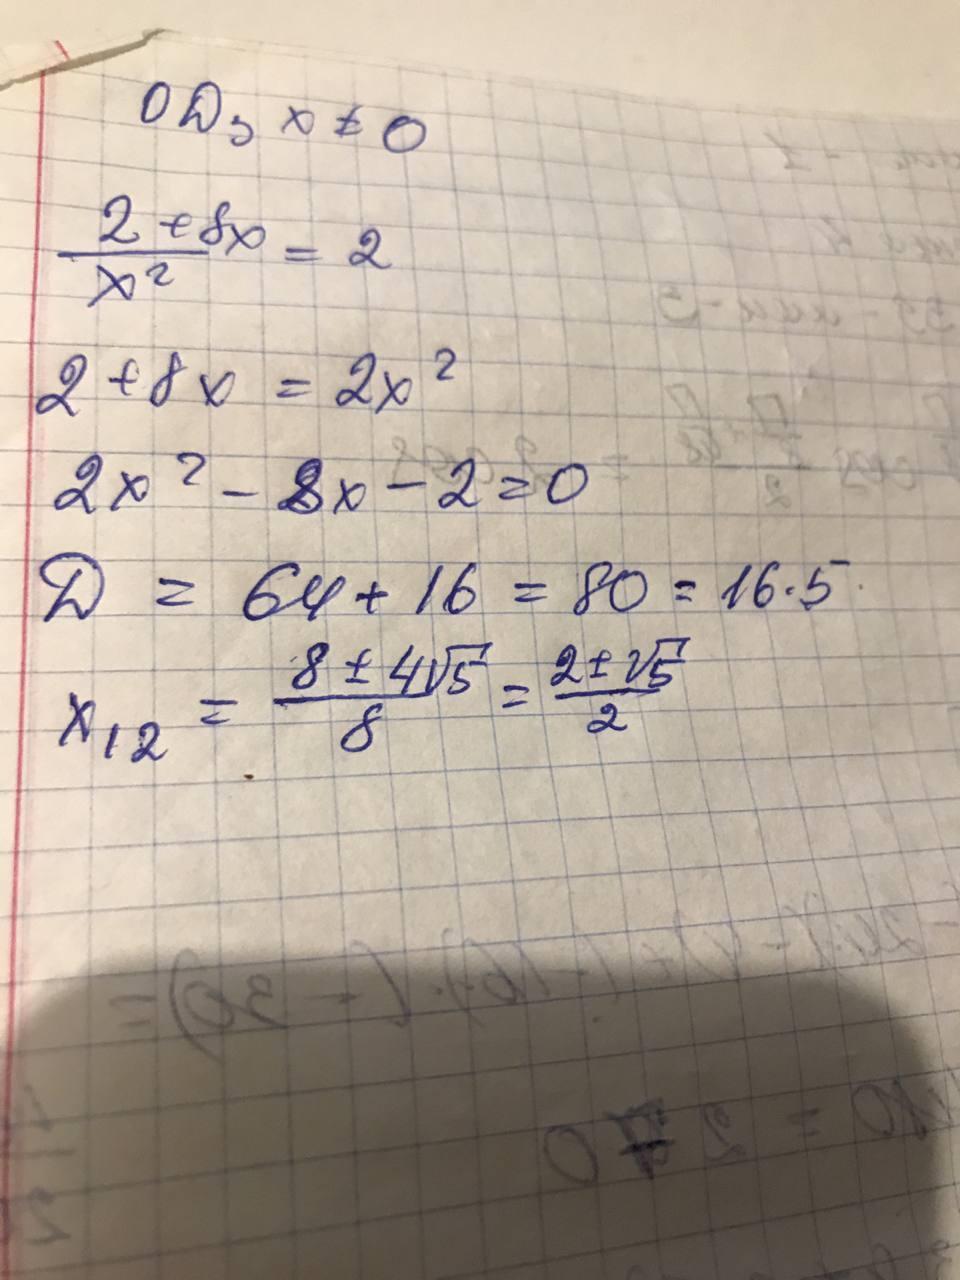 ОДЗ x ≠ 0
(2 + 8x) / x² = 2
2 + 8x = 2x²
2x² - 8x - 2 = 0
D = 64 + 16 = 80 = 16·5
x₁₂ = (8 ± 4√5) / 8 = (2 ± √5) / 2